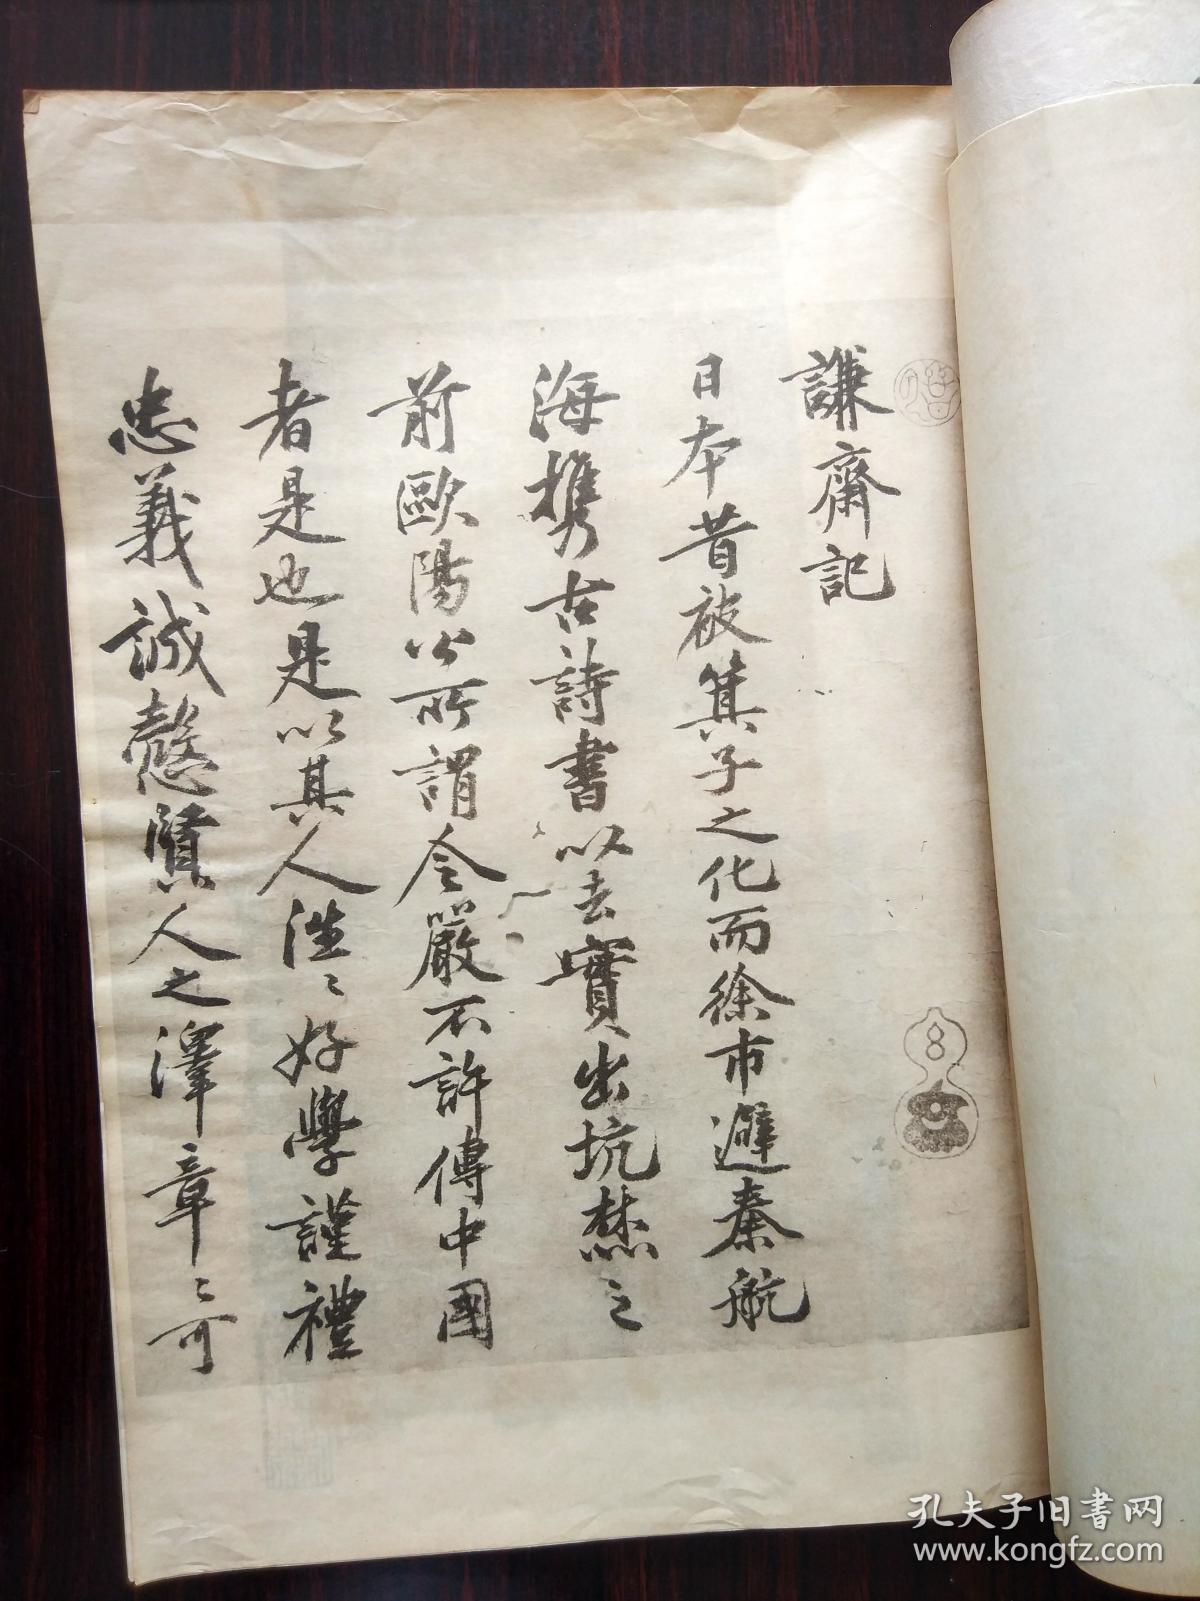 謙齋記
日本昔被箕子之化而徐市避秦航
海攜古詩書以去實出坑焚之
前歐陽公所謂令嚴不許傳中國
者是也是以其人往〻好學謹禮
忠義誠慤賢人之澤章〻可
孔夫子旧书网
www.kongfz.com